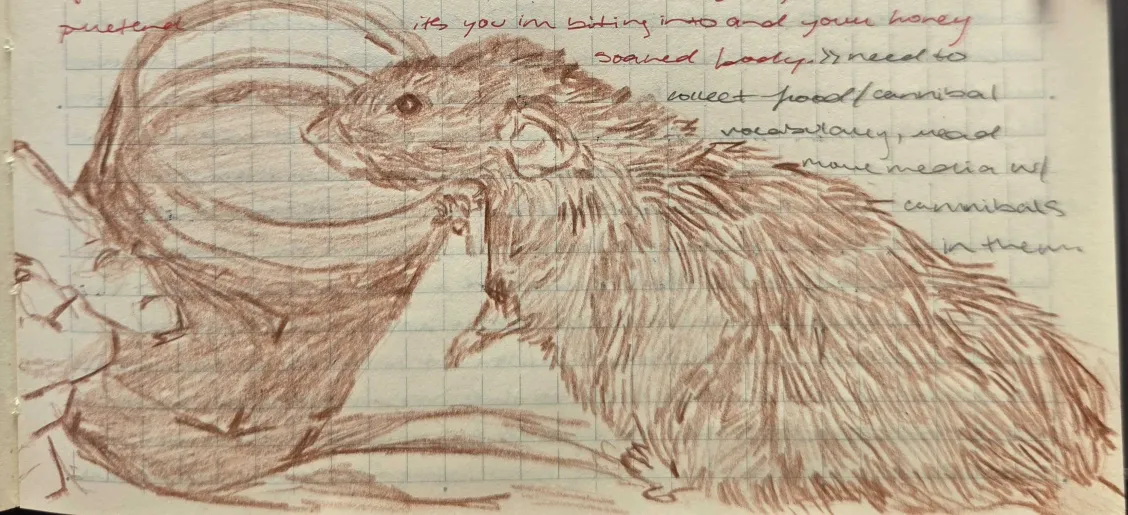 pretend its you im biting into and your honey
soaked body. >> need to
collect food/cannibal
vocabulary, read
more media w/
cannibals
in them